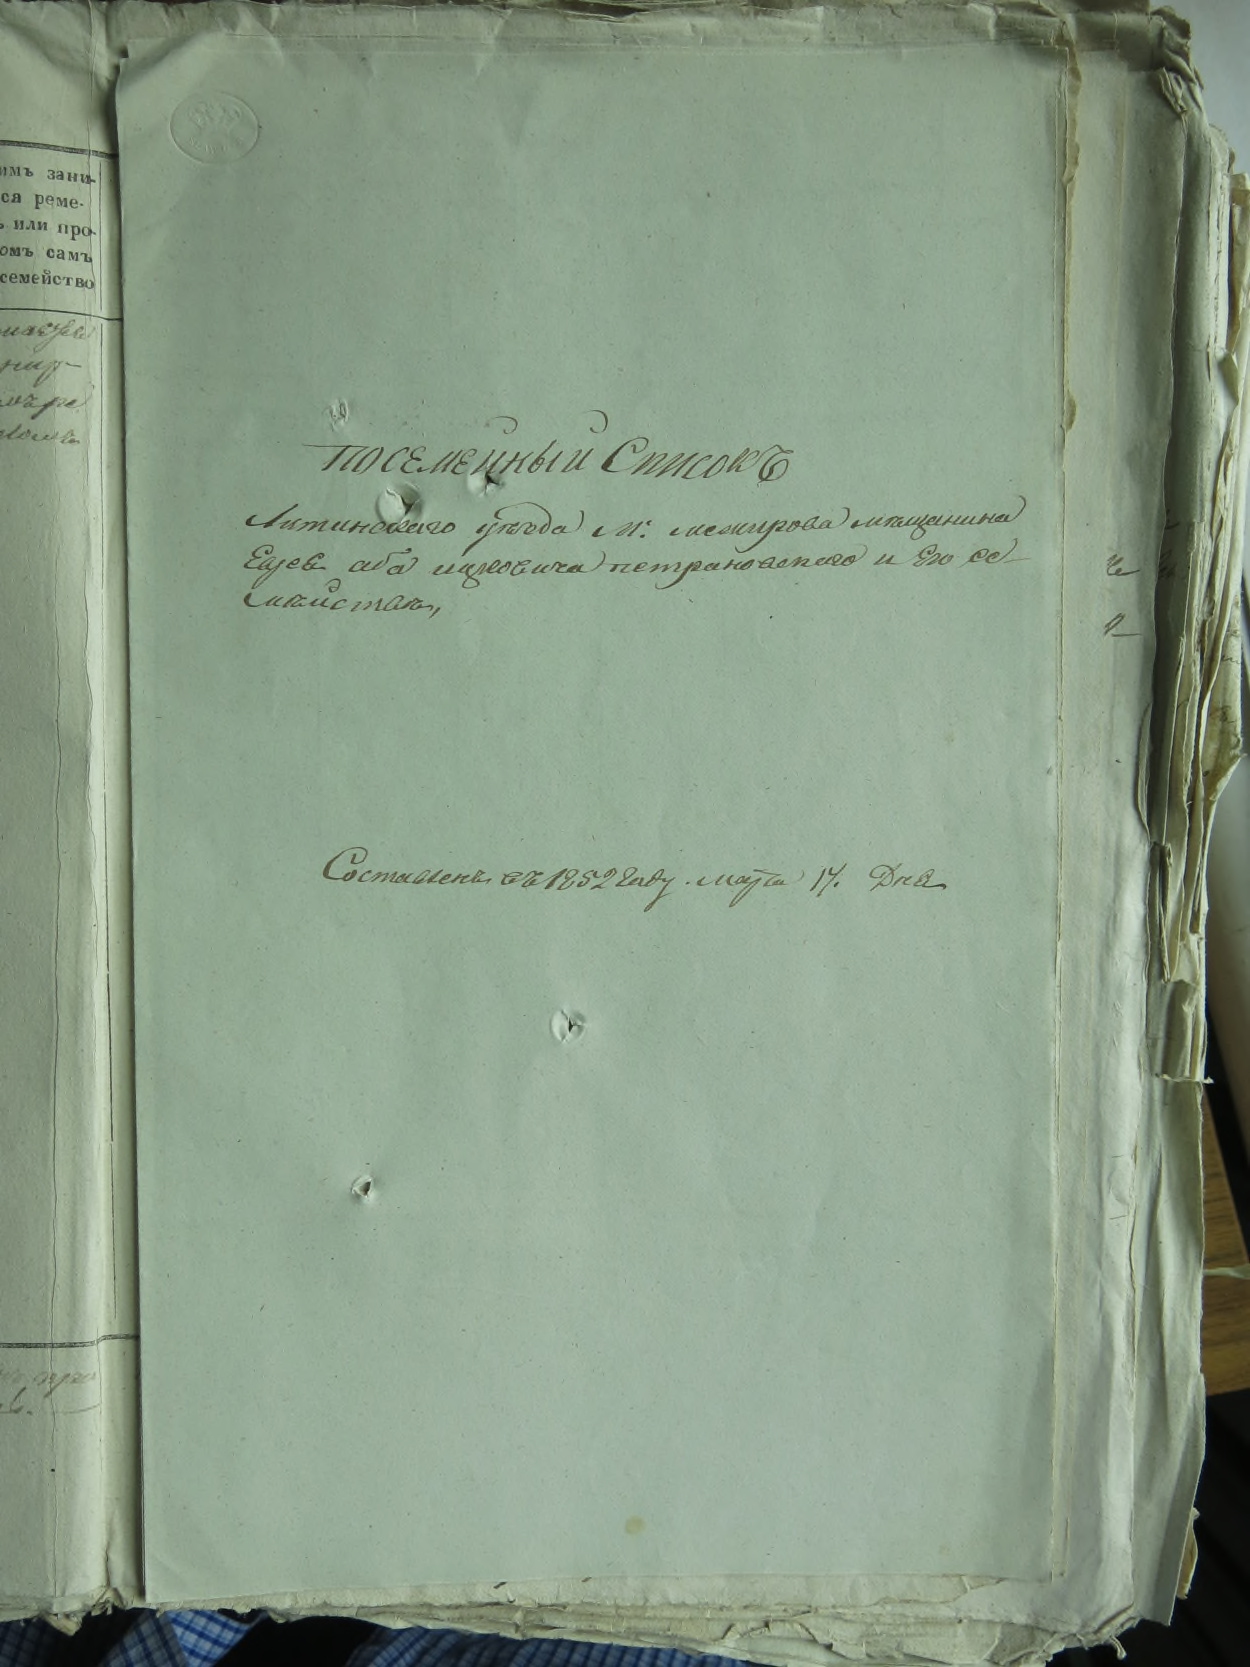 имъ зани-
ся реме-
ъ или про-
омъ самъ
семейство
Посемейный Списокъ
Литинскаго уѣзда М: межирова мѣщанина
аба ицковича петрановскаго и Его се-
мѣйства,
Составленъ въ 1852 году марта 17. Дня